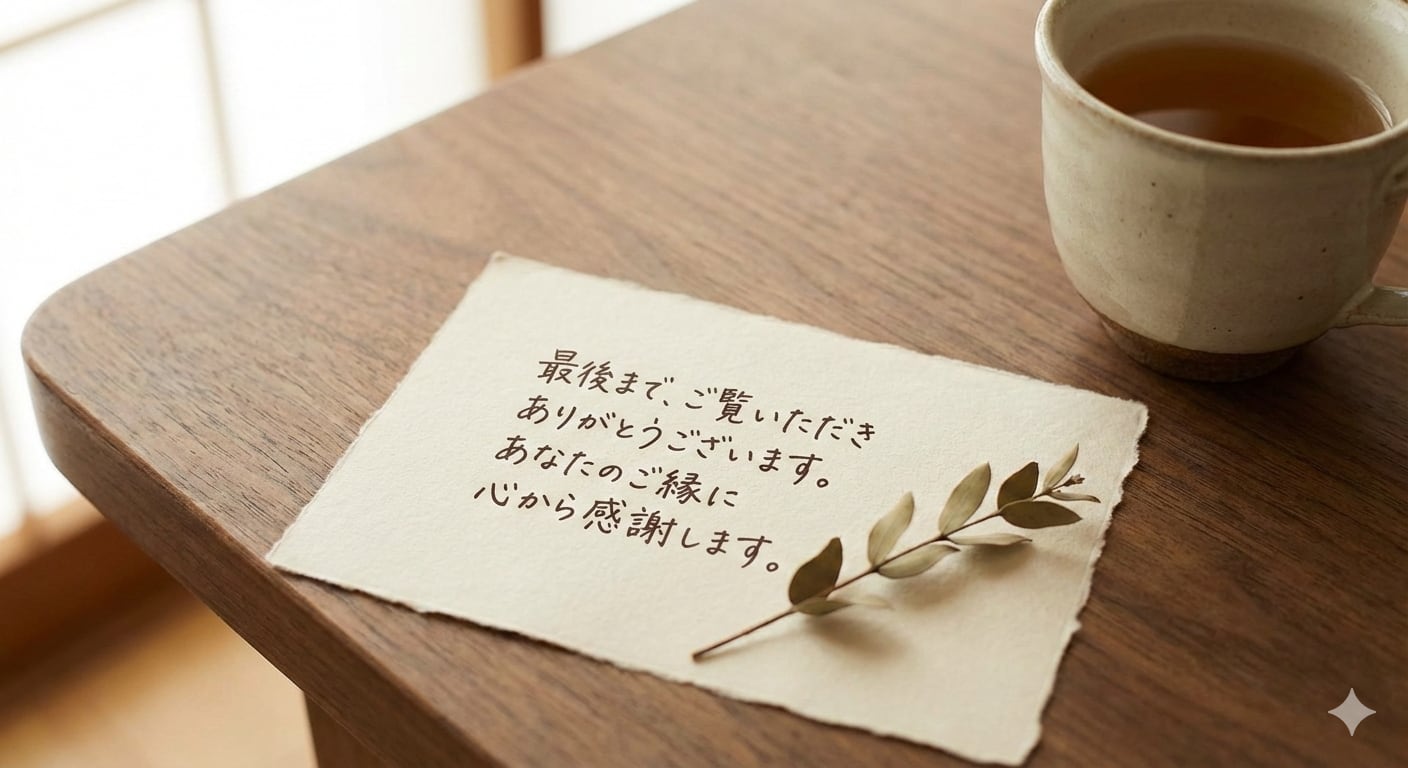 最後まで、ご覧いただき
ありがとうございます。
あなたのご縁に
心から感謝します。